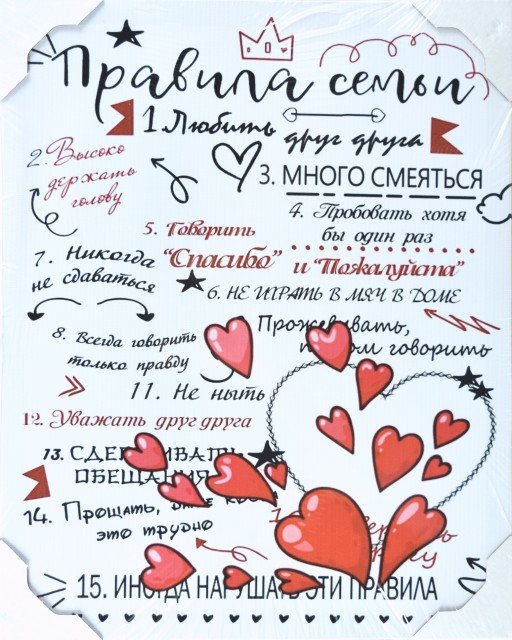 Правила семьи
1 Любить друг друга
2. Высоко
держать
голову
3. МНОГО СМЕЯТЬСЯ
4. Пробовать хотя
бы один раз
5. Говорить
"Спасибо" и "Пожалуйста"
6. НЕ ИГРАТЬ В МЯЧ В ДОМЕ
7. Никогда
не сдаваться
8. Всегда говорить
только правду
говорить
11. Не ныть
12. Уважать друг друга
13.
14. Прощать,
это трудно
15. ИНОГДА НАРУШАТЬ ЭТИ ПРАВИЛА